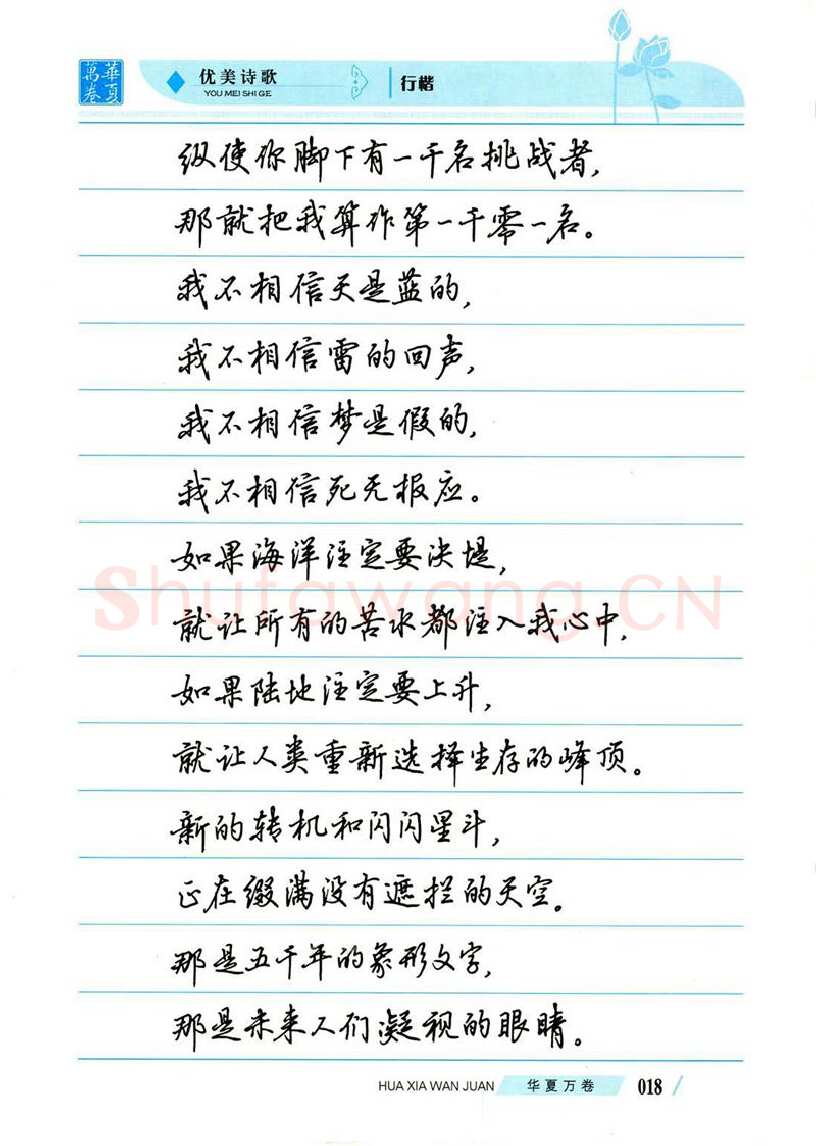 華夏
萬卷
优美诗歌
YOU MEI SHI GE
行楷
纵使你脚下有一千名挑战者,
那就把我算作第一千零一名。
我不相信天是蓝的,
我不相信雷的回声,
我不相信梦是假的,
我不相信死无报应。
如果海洋注定要决堤,
就让所有的苦水都注入我心中,
如果陆地注定要上升,
就让人类重新选择生存的峰顶。
新的转机和闪闪星斗,
正在缀满没有遮拦的天空。
那是五千年的象形文字,
那是未来人们凝视的眼睛。
Shufawang.CN
HUA XIA WAN JUAN
华夏万卷
018